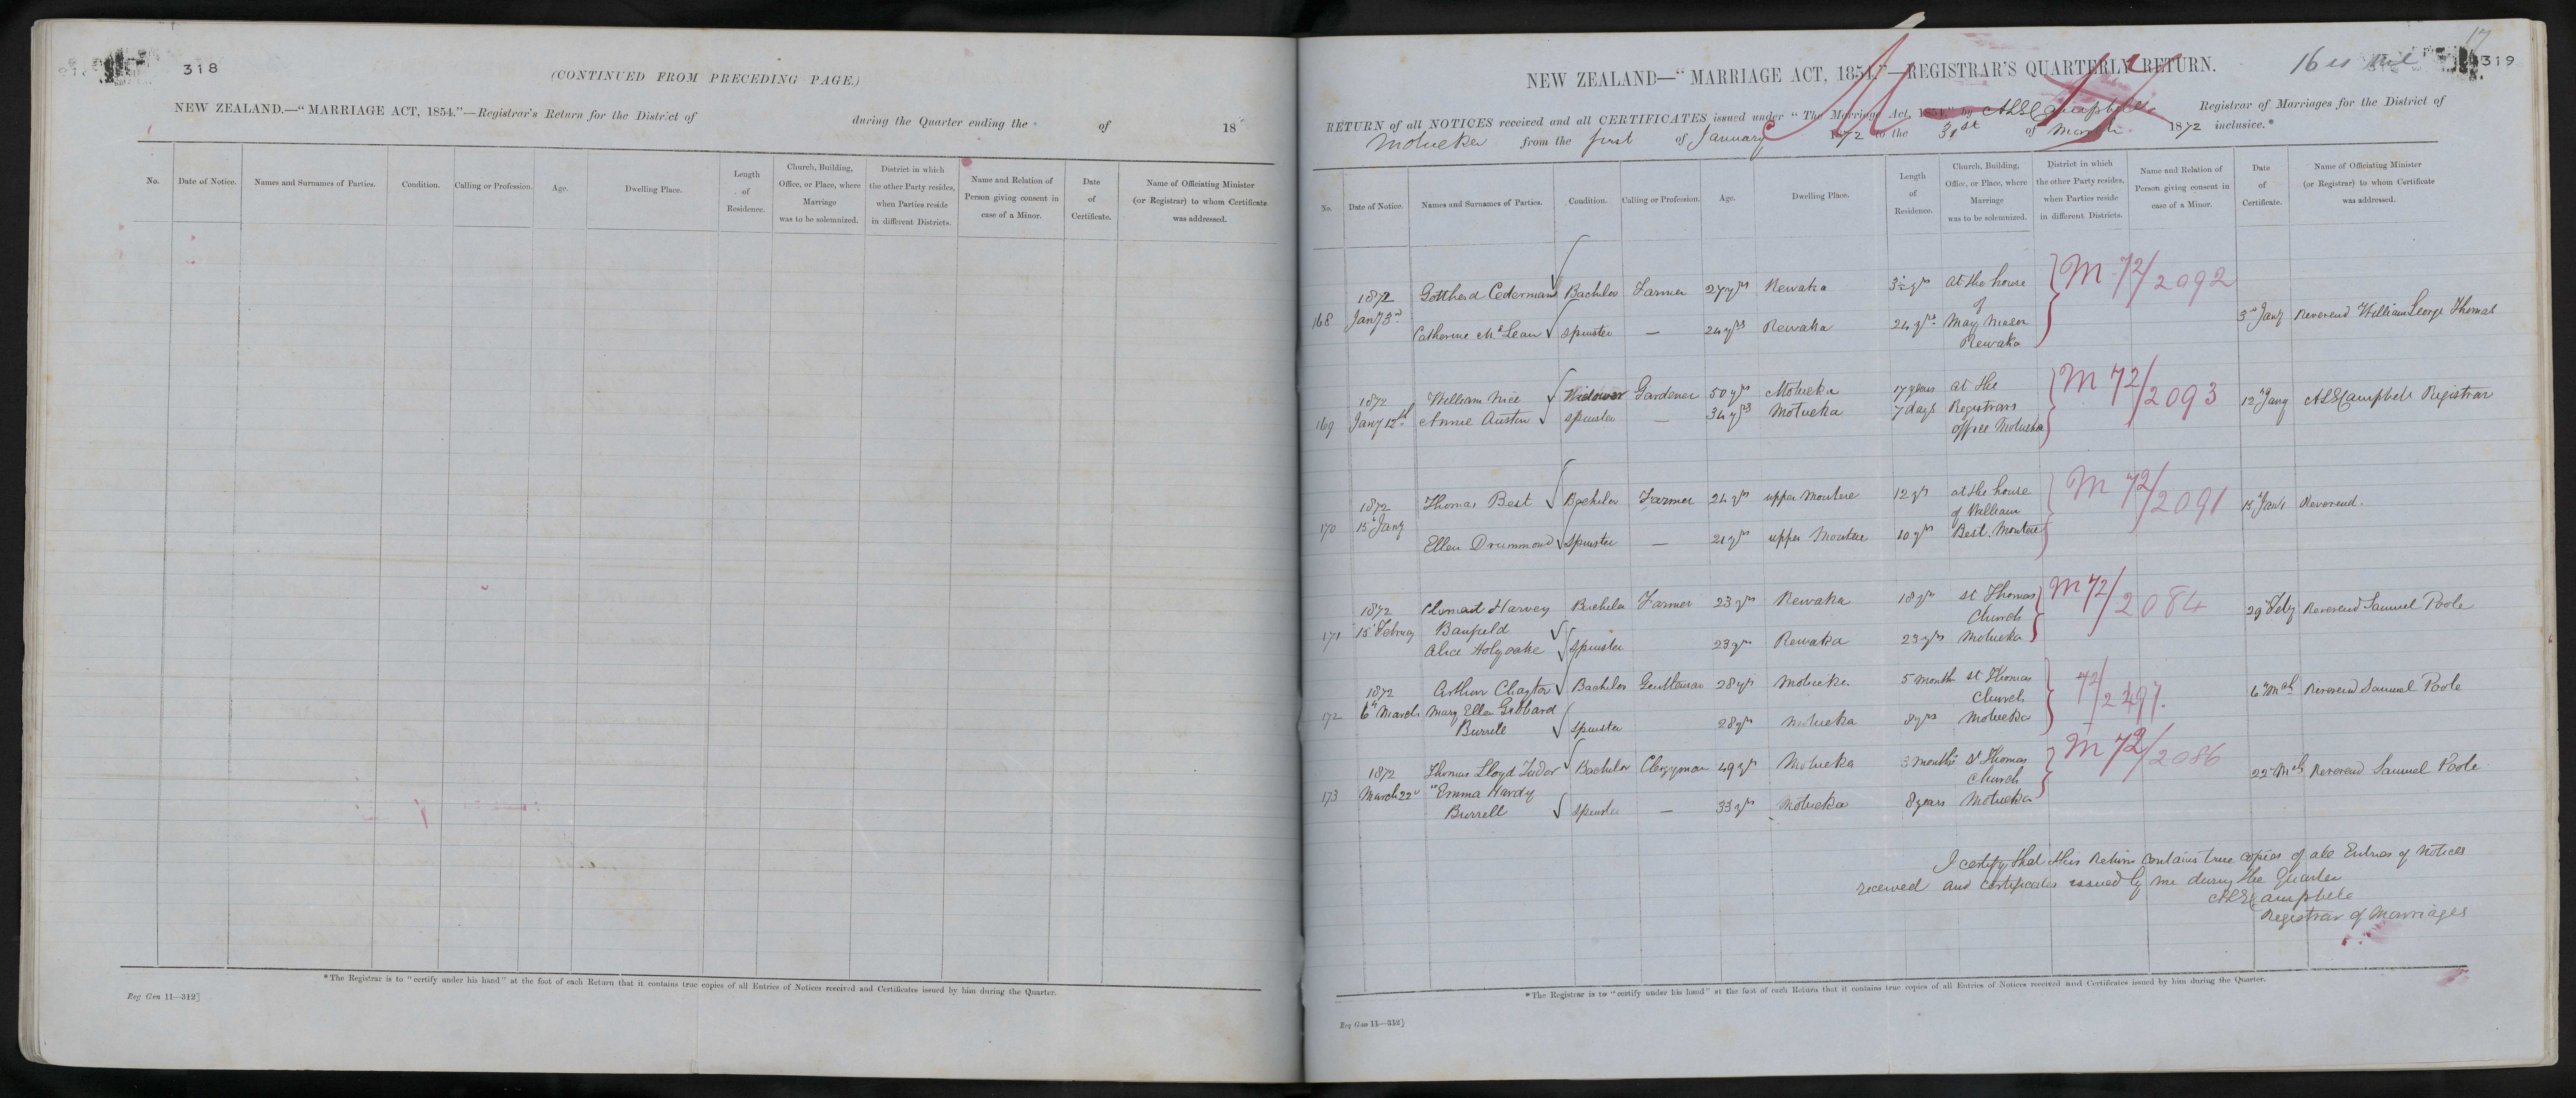 318
(CONTINUED FROM PRECEDING PAGE.)
NEW ZEALAND.—"MARRIAGE ACT, 1854."—Registrar's Return for the District of during the Quarter ending the of 18
No. Date of Notice. Names and Surnames of Parties. Condition. Calling or Profession. Age. Dwelling Place. Length of Residence. Church, Building, Office, or Place, where Marriage was to be solemnized. District in which the other Party resides, when Parties reside in different Districts. Name and Relation of Person giving consent in case of a Minor. Date of Certificate. Name of Officiating Minister (or Registrar) to whom Certificate was addressed.
*The Registrar is to "certify under his hand" at the foot of each Return that it contains true copies of all Entries of Notices received and Certificates issued by him during the Quarter.
Reg Gen 11—312]
17
319
NEW ZEALAND—"MARRIAGE ACT, 1854."—REGISTRAR'S QUARTERLY RETURN.
RETURN of all NOTICES received and all CERTIFICATES issued under "The Marriage Act, 1854," by Campbell Registrar of Marriages for the District of
Motueka from the first of January 1872 to the 31st of March 1872 inclusive.*
No. Date of Notice. Names and Surnames of Parties. Condition. Calling or Profession. Age. Dwelling Place. Length of Residence. Church, Building, Office, or Place, where Marriage was to be solemnized. District in which the other Party resides, when Parties reside in different Districts. Name and Relation of Person giving consent in case of a Minor. Date of Certificate. Name of Officiating Minister (or Registrar) to whom Certificate was addressed.
1872 Gotthard Cederman Bachelor Farmer 27 yrs Rewaka 3½ yrs at the house M 72/2092
168 Jany 3rd of 3rd Jany Reverend William George Thomas
Catherine McLean Spinster — 24 yrs Rewaka 24 yrs May Mason
Rewaka
1872 William Nice Widower Gardener 50 yrs Motueka 17 years at the M 72/2093
169 Jany 12th Annie Austin Spinster — 34 yrs Motueka 7 days Registrars 12 Jany Campbell Registrar
office Motueka
1872 Thomas Best Bachelor Farmer 24 yrs upper Moutere 12 yrs at the house M 72/2091
170 15 Jany of William 15 Jany Reverend.
Ellen Drummond Spinster — 21 yrs upper Moutere 10 yrs Best. Moutere
1872 Harvey Bachelor Farmer 23 yrs Rewaka 18 yrs St Thomas M 72/2084
171 15 Banfield Church 29 Feby Reverend Samuel Poole
Alice Holyoake Spinster 23 yrs Rewaka 23 yrs Motueka
1872 Arthur Chaytor Bachelor Gentleman 28 yrs Motueka 5 month St Thomas 72/2497.
172 6th March Mary Ellen Gibbard Church 6th Mch Reverend Samuel Poole
Burrell Spinster 28 yrs Motueka 8 yrs Motueka
1872 Thomas Lloyd Tudor Bachelor Clergyman 49 yrs Motueka 3 months St Thomas M 72/2086
173 March 22 Emma Hardy Church 22 Mch Reverend Samuel Poole
Burrell Spinster — 33 yrs Motueka 8 years Motueka
I certify that this Return contains true copies of all Entries of Notices
received and certificates issued by me during the Quarter
Campbell
Registrar of Marriages
*The Registrar is to "certify under his hand" at the foot of each Return that it contains true copies of all Entries of Notices received and Certificates issued by him during the Quarter.
Reg Gen 11—312]